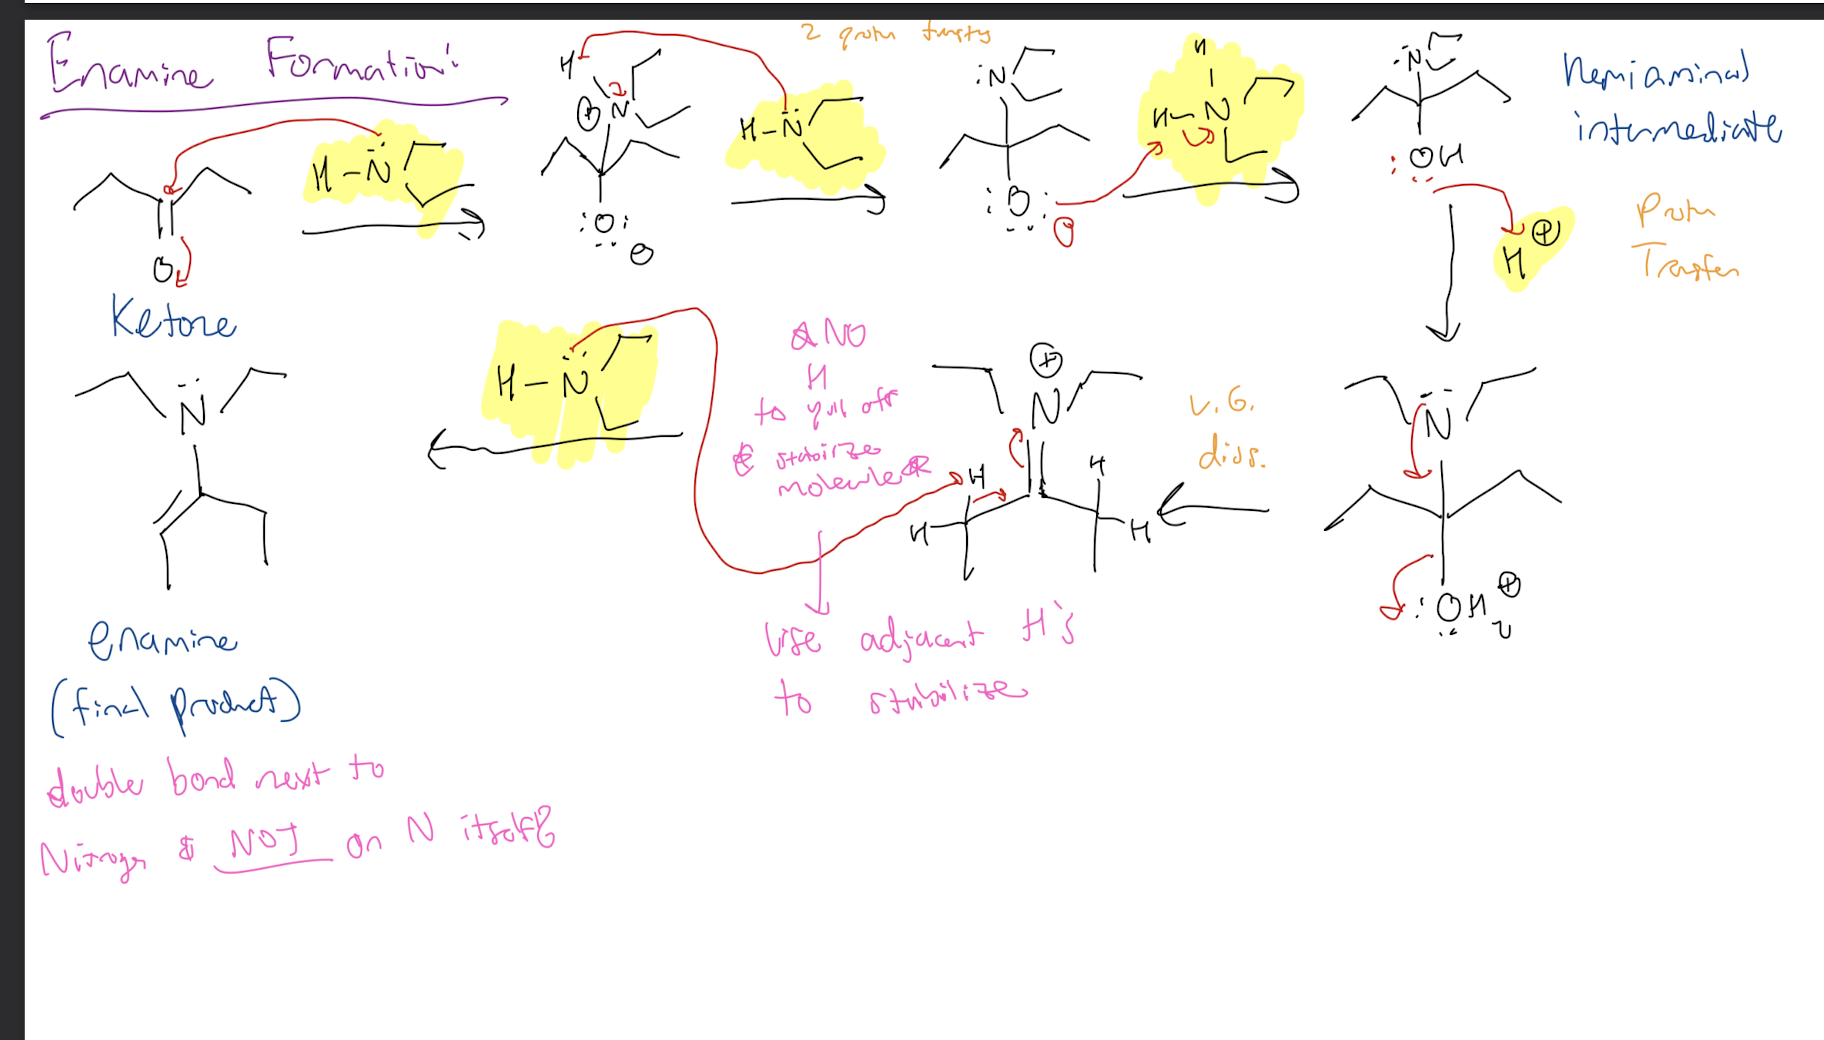 Enamine Formation:
2 proton
H
N
H-N
:N
H
H-N
:N
hemiaminal
intermediate
:OH
H
Proton
Transfer
O
:O:
:O:
Ketone
N
H-N
NO
H
to pull off
stabilize
molecule
N
L.G.
diss.
N
H
H
H
H
:OH2
Use adjacent H's
to stabilize
enamine
(final product)
double bond next to
Nitrogen & NOT on N itself